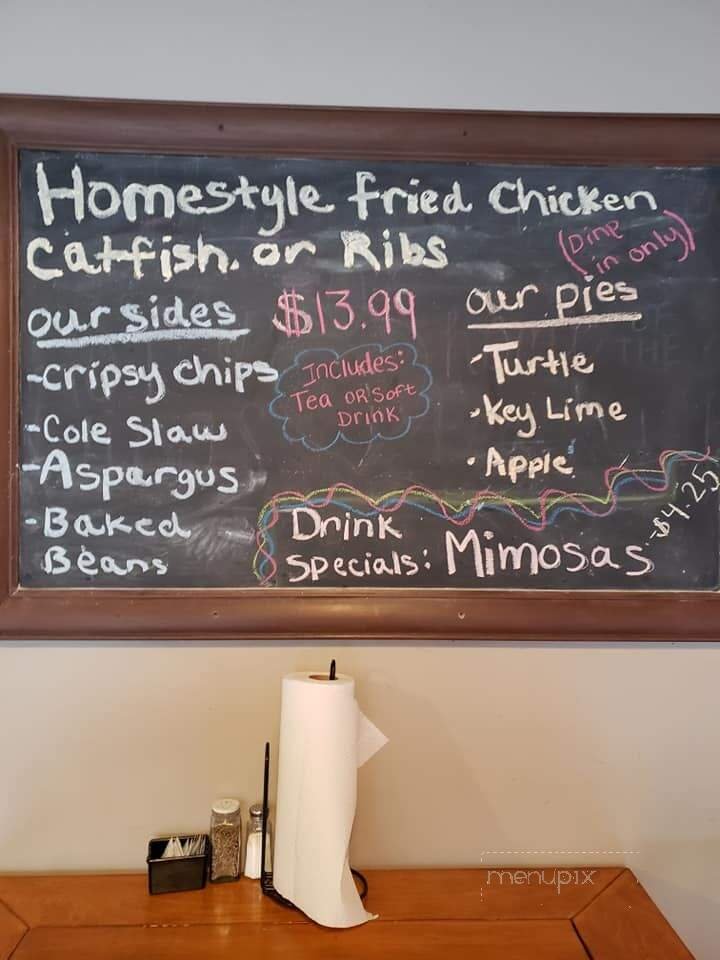 Homestyle fried Chicken
Catfish. or Ribs
(Dine in only)
our sides
-cripsy chips
-Cole Slaw
-Aspargus
-Baked
Beans
$13.99
Includes:
Tea OR Soft
Drink
our pies
-Turtle
•Key Lime
•Apple
Drink
Specials: Mimosas -$4.25
menupix